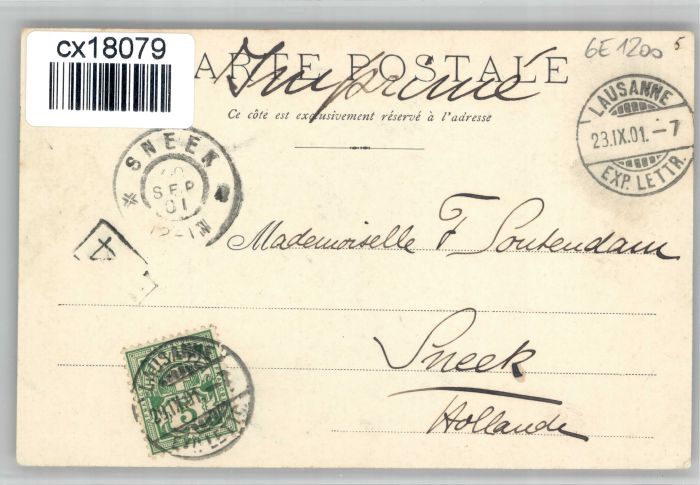 cx18079
CARTE POSTALE
Imprimé
6E 1200 5
Ce côté est exclusivement réservé à l'adresse
LAUSANNE
23.IX.01.-7
EXP. LETTR.
SNEEK
SEP
01
Mademoiselle F Soutendam
4
Sneek
Hollande
5